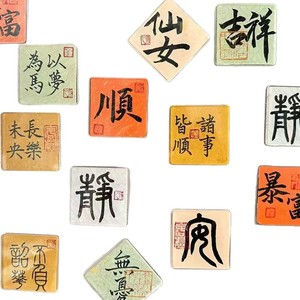 富
仙女
吉祥
以夢
為馬
順
諸事
皆順
靜
長樂
未央
靜
安
暴富
不負
韶華
無憂